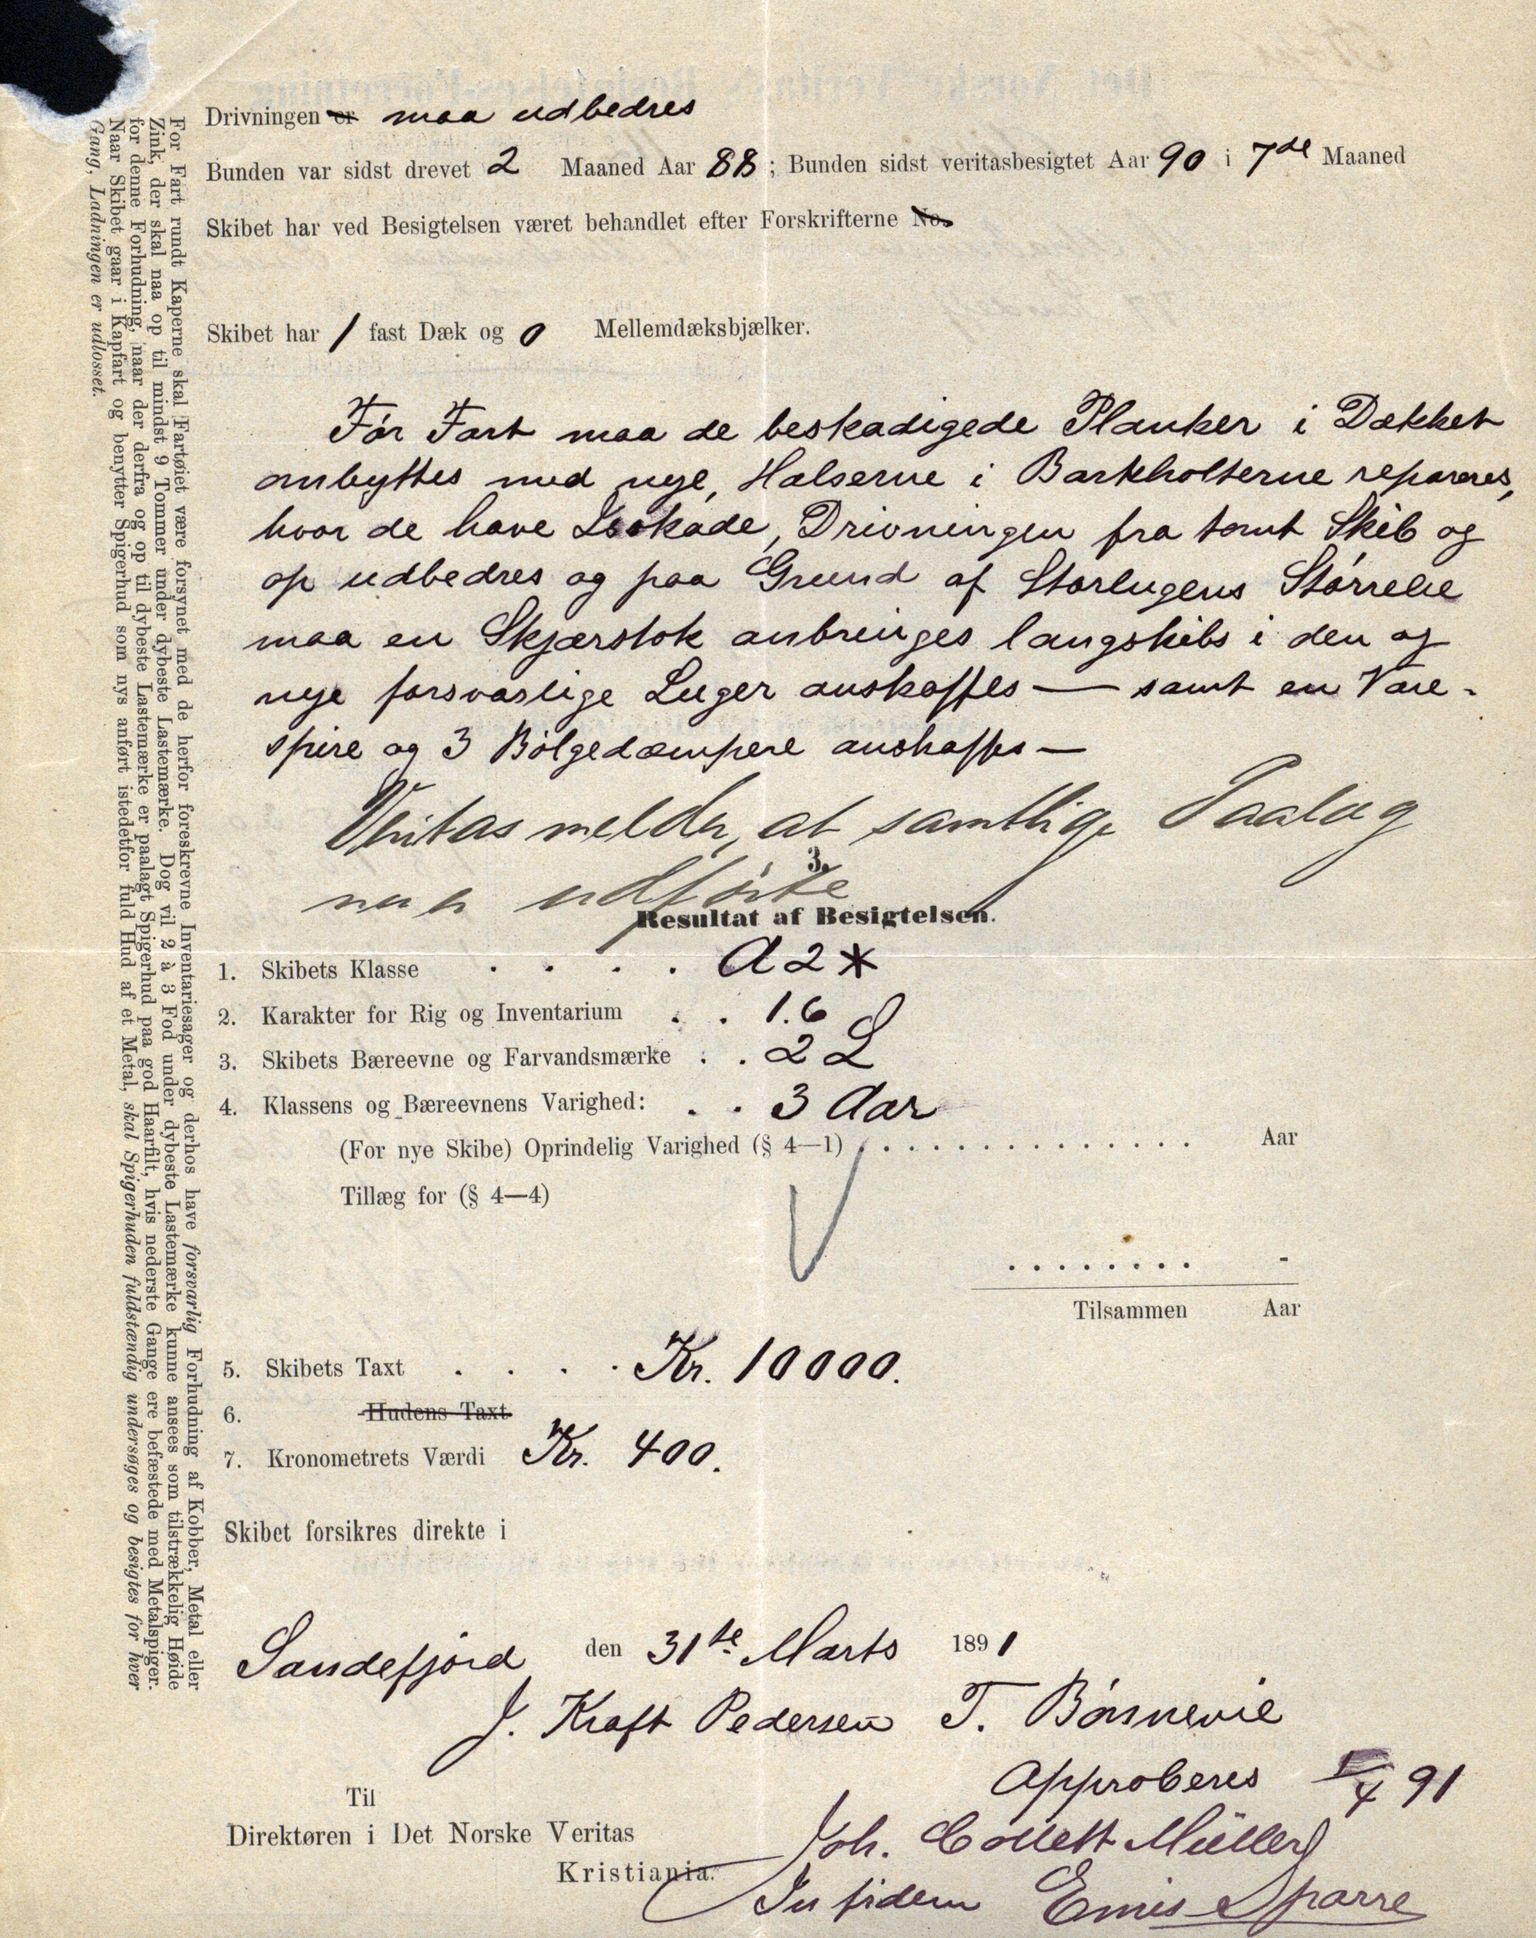 Drivningen er maa udbedres
Bunden var sidst drevet 2 Maaned Aar 88; Bunden sidst veritasbesigtet Aar 90 i 7de Maaned
Skibet har ved Besigtelsen været behandlet efter Forskrifterne No.
Skibet har 1 fast Dæk og 0 Mellemdæksbjælker.
Før Fart maa de beskadigede Planker i Dækket
ombyttes med nye, Halserne i Barkholterne repareres,
hvor de have Isskade, Drivningen fra tomt Skib og
op udbedres og paa Grund af Storlugens Størrelse
maa en Skjærstok anbringes langskibs i den og
nye forsvarlige Luger anskaffes — samt en Vare-
spire og 3 Bølgedæmpere anskaffes —
Veritas melder, at samtlige Paalæg
nu er udførte
3.
Resultat af Besigtelsen.
1. Skibets Klasse . . . . . A 2 *
2. Karakter for Rig og Inventarium . . 1.6
3. Skibets Bæreevne og Farvandsmærke . . 2 L
4. Klassens og Bæreevnens Varighed: . . 3 Aar
(For nye Skibe) Oprindelig Varighed (§ 4—1) . . . . . . . . . . . . . . . Aar
Tillæg for (§ 4—4)
. . . . . . . . -
Tilsammen Aar
5. Skibets Taxt . . . . Kr. 10000.
6. Hudens Taxt
7. Kronometrets Værdi Kr. 400.
Skibet forsikres direkte i
Sandefjord den 31te Marts 1891
J. Kraft Pedersen T. Børsnevie
Approberes /4 91
Til
Direktøren i Det Norske Veritas
Joh. Collett Müller
Kristiania.
In fidem Sparre
For Fart rundt Kaperne skal Fartøiet være forsynet med de herfor foreskrevne Inventariesager og derhos have forsvarlig Forhudning af Kobber, Metal eller
Zink, der skal naa op til mindst 9 Tommer under dybeste Lastemærke. Dog vil 2 à 3 Fod under dybeste Lastemærke kunne ansees som tilstrækkelig Høide
for denne Forhudning, naar der derfra og op til dybeste Lastemærke er paalagt Spigerhud paa god Haarfilt, hvis nederste Gange ere befæstede med Metalspiger.
Naar Skibet gaar i Kapfart og benytter Spigerhud som nys anført istedetfor fuld Hud af et Metal, skal Spigerhuden fuldstændig undersøges og besigtes for hver
Gang, Ladningen er udlosset.